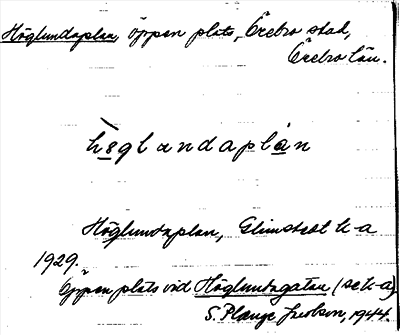 Höglundaplan, öppen plats, Örebro stad,
Örebro län.
höglundaplan
Höglundaplan, Glimstedt k-a
1929.
Öppen plats vid Höglundagatan (se k-a)
S. Plange Jacobson, 1944.